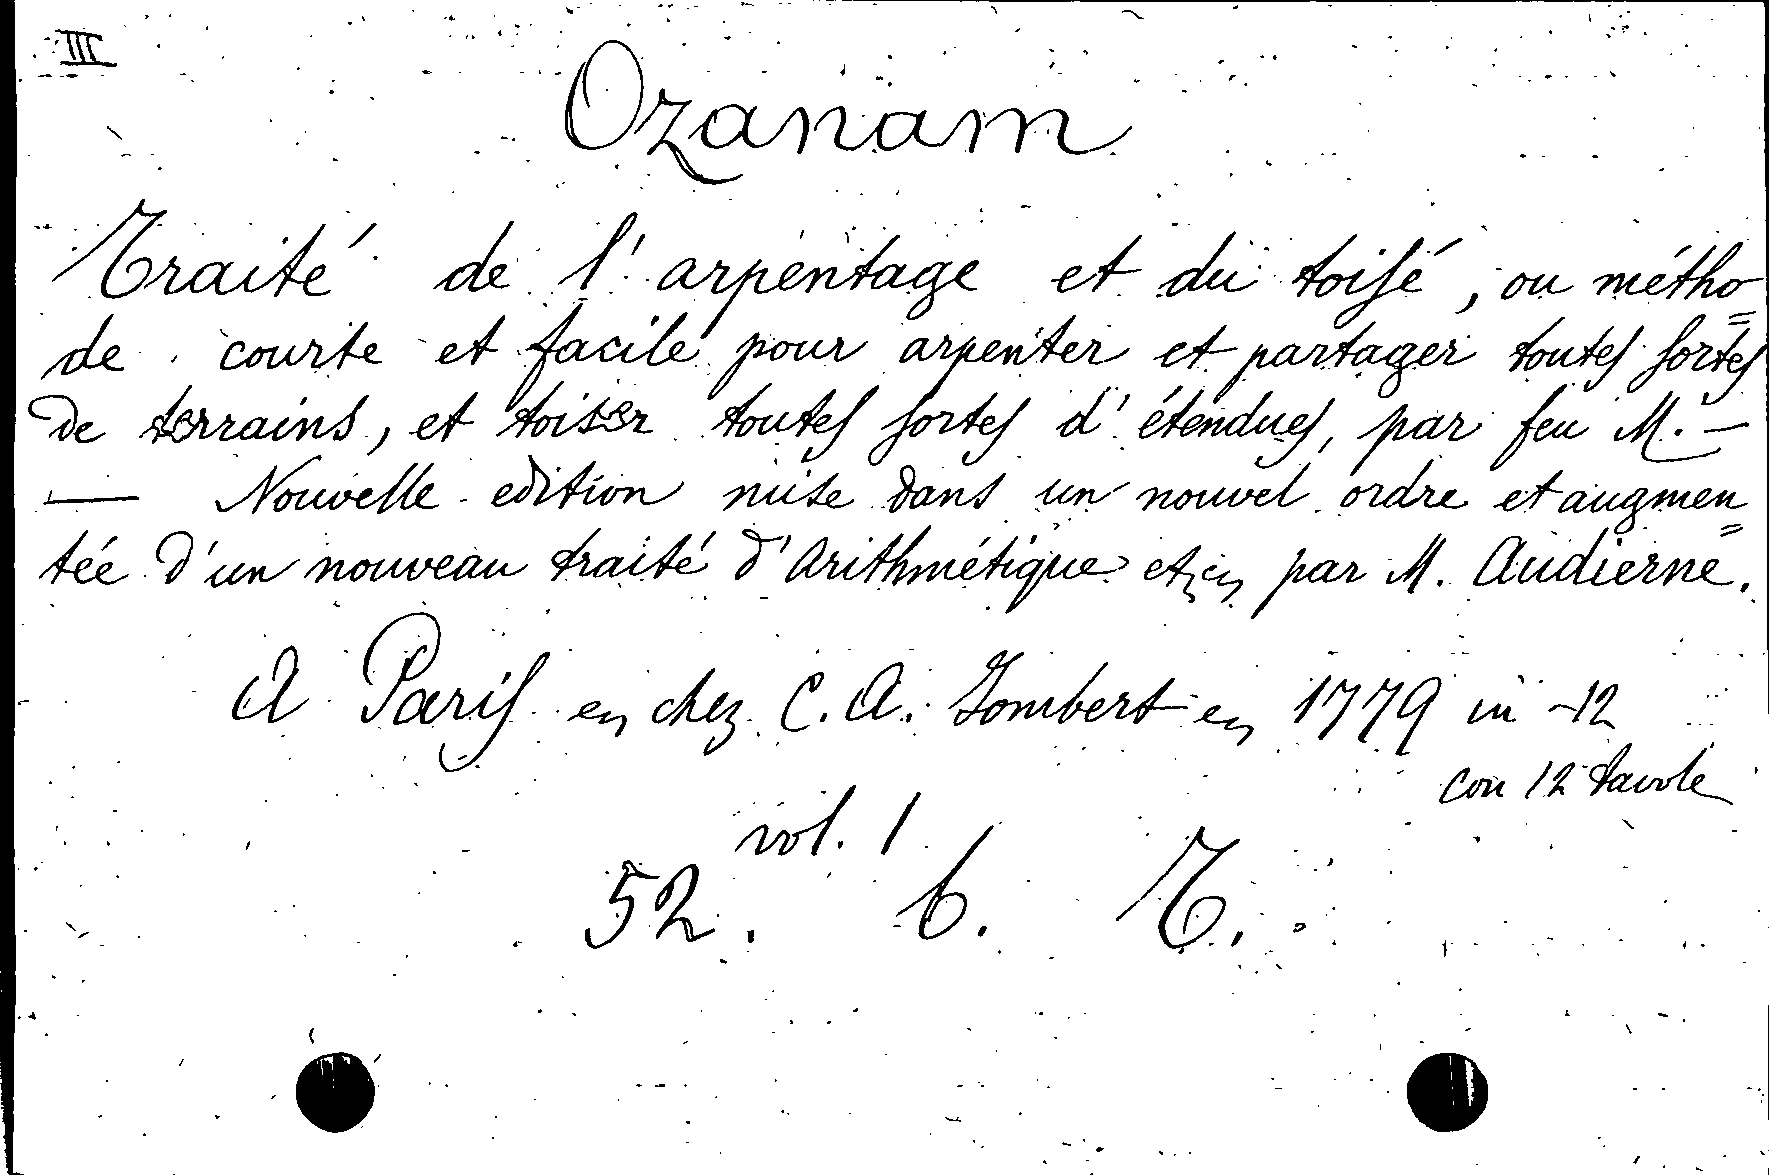 III
Ozanam
Traité de l'arpentage et du toisé, ou métho=
de courte et facile pour arpenter et partager toutes sortes
de terrains, et toiser toutes sortes d'étendues, par feu M. —
— Nouvelle edition mise dans un nouvel ordre et augmen=
tée d'un nouveau traité d'Arithmétique etc, par M. Audierne.
A Paris chez C. A. Jombert 1779 in-12
con 12 tavole
vol. 1
52. 6. T.